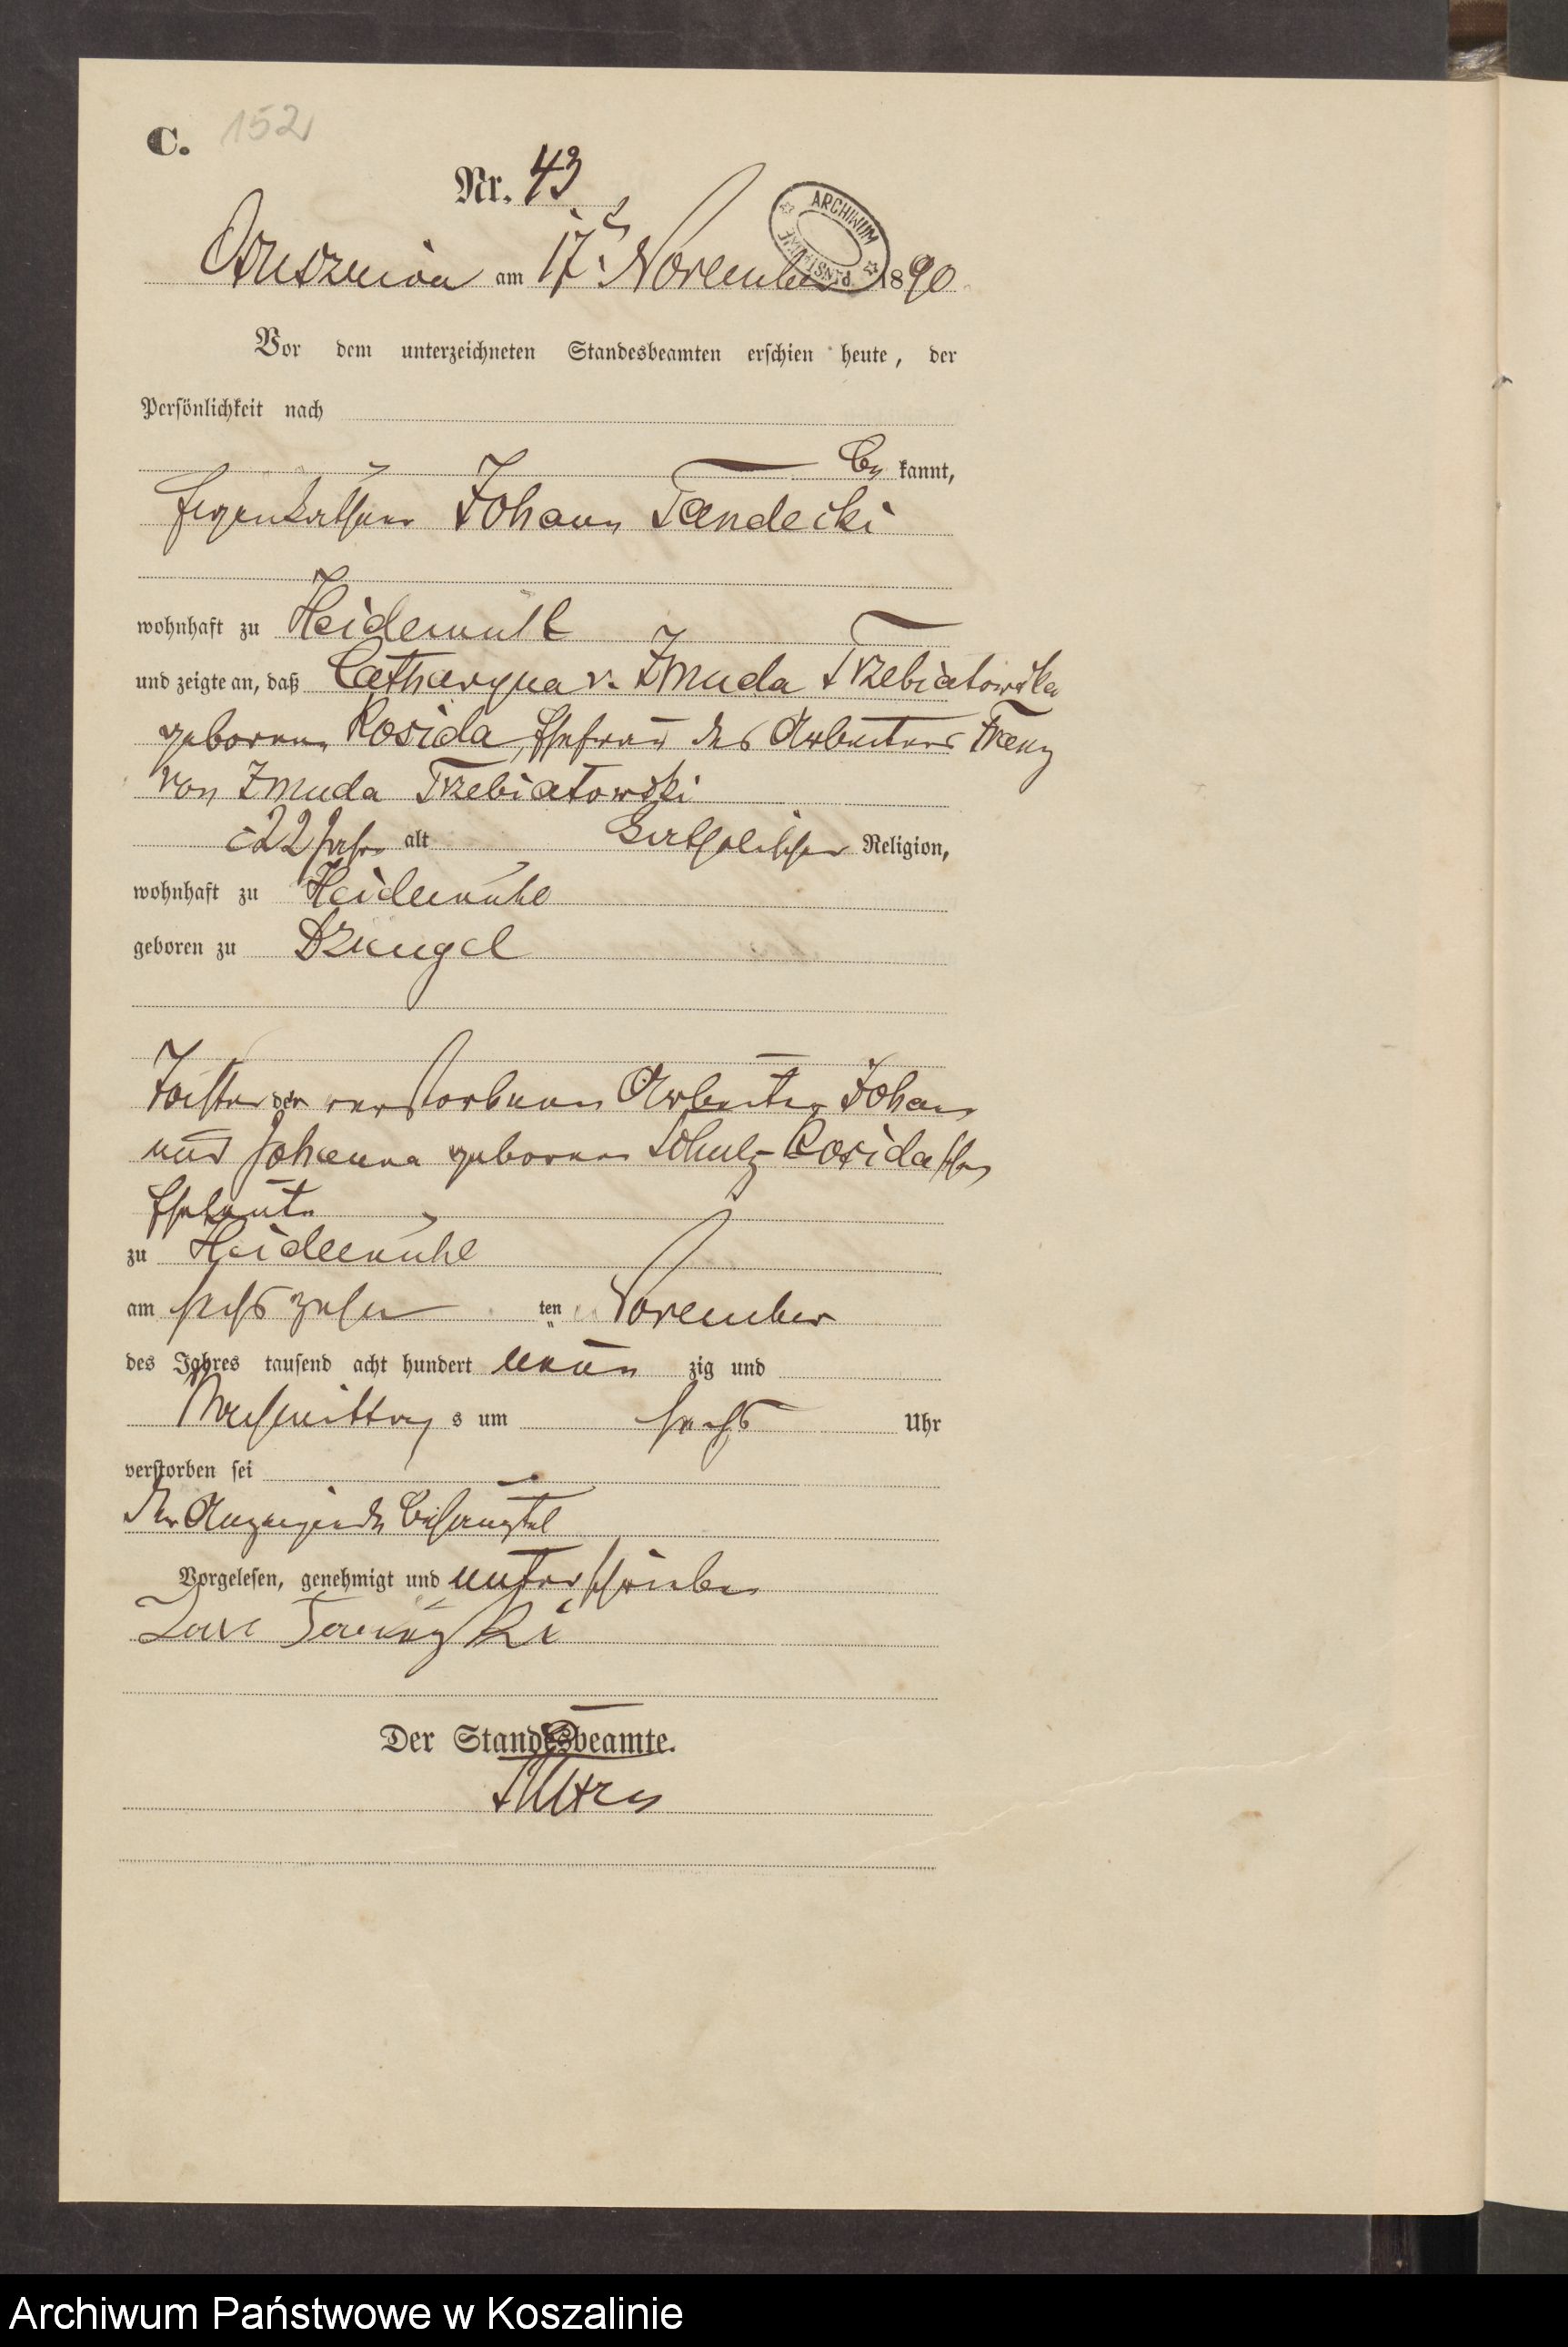 C. 152
Nr. 43
ARCHIWUM PAŃSTWOWE
am 17 ten November 1890
Vor dem unterzeichneten Standesbeamten erschien heute, der
Persönlichkeit nach
be kannt,
Eigenkäthner Johann Tandecki
wohnhaft zu Heidemühl
und zeigte an, daß Catharyna v. Zmuda Trzebiatowska
geborene Kosida, Ehefrau des Arbeiters Franz
von Zmuda Trzebiatowski
22 Jahr alt katholischer Religion,
wohnhaft zu Heidemühl
geboren zu
Tochter der verstorbenen Arbeiter Johann
und Johanna geborenen Schulz Kosida schen
Eheleute
zu Heidemühl
am sechszehn ten November
des Jahres tausend acht hundert neun zig und
Nachmittag s um sechs Uhr
verstorben sei
Der Anzeigende
Vorgelesen, genehmigt und unterschrieben
Der Standesbeamte.
Archiwum Państwowe w Koszalinie